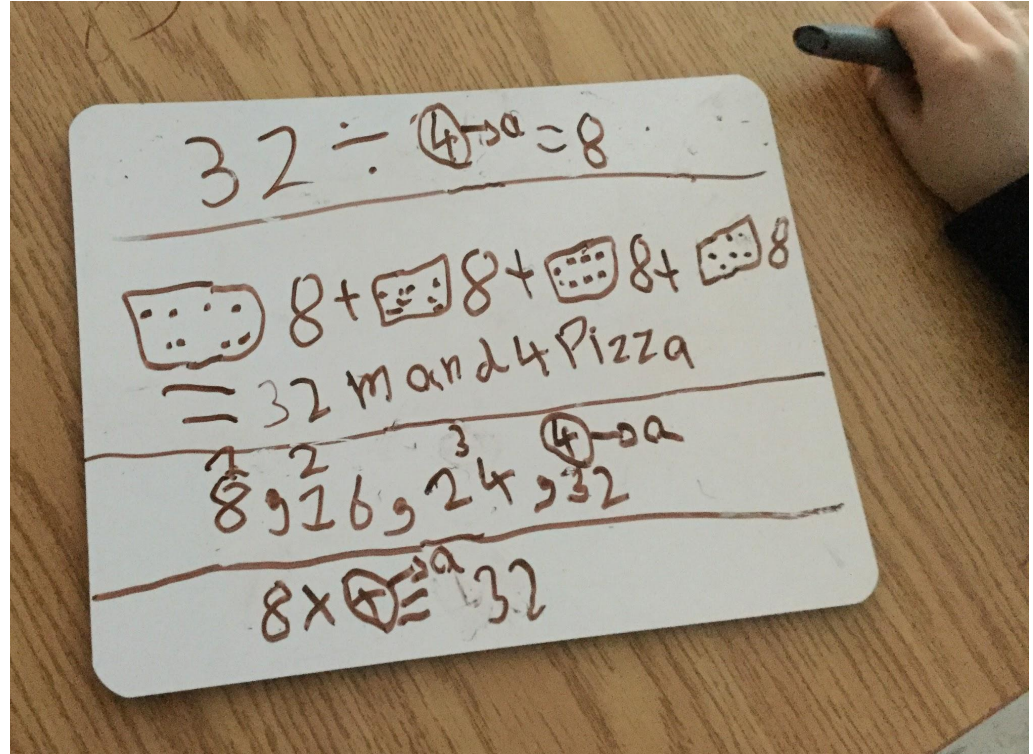 32 ÷ 4 → a = 8
8 + 8 + 8 + 8
= 32 m and 4 Pizza
1 2 3 4 → a
8, 16, 24, 32
8 × 4 → a = 32